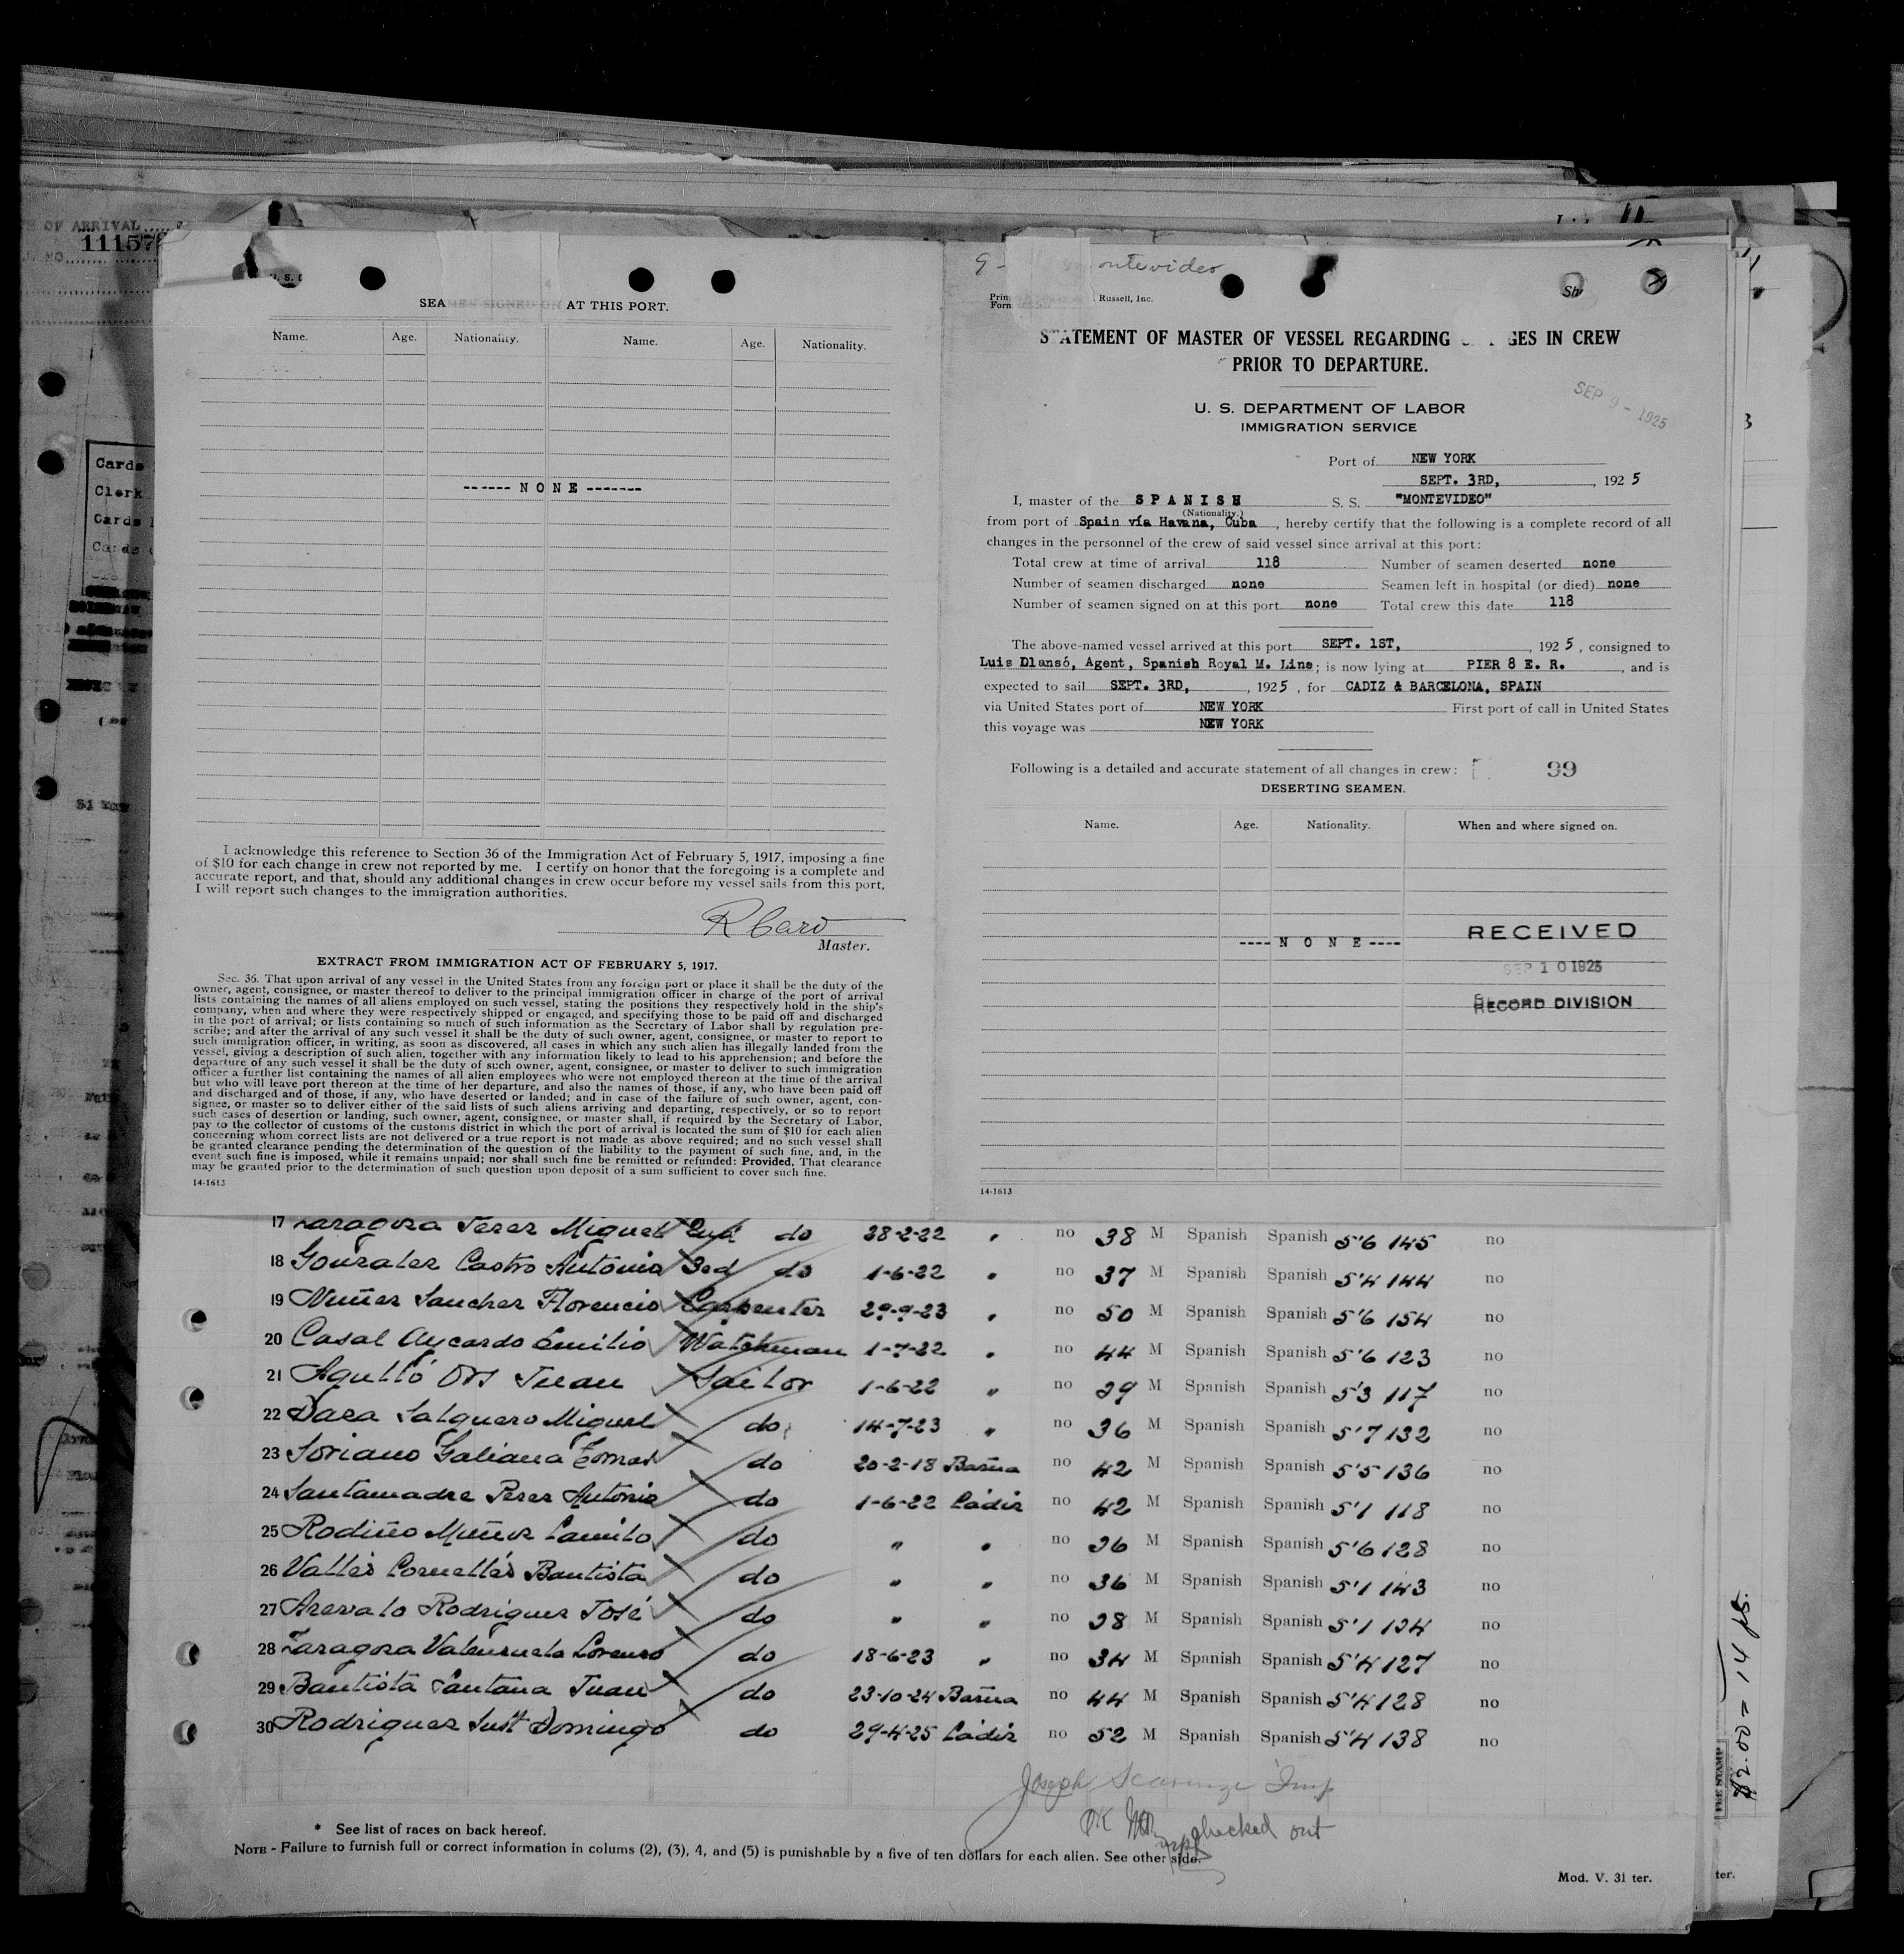 OF ARRIVAL
11157
NO.
Cards
Clerk
Cards
Cards
SEAMEN SIGNED ON AT THIS PORT.
Name. Age. Nationality. Name. Age. Nationality.
------ N O N E -------
I acknowledge this reference to Section 36 of the Immigration Act of February 5, 1917, imposing a fine
of $10 for each change in crew not reported by me. I certify on honor that the foregoing is a complete and
accurate report, and that, should any additional changes in crew occur before my vessel sails from this port,
I will report such changes to the immigration authorities.
R Caro
Master.
EXTRACT FROM IMMIGRATION ACT OF FEBRUARY 5, 1917.
Sec. 36. That upon arrival of any vessel in the United States from any foreign port or place it shall be the duty of the
owner, agent, consignee, or master thereof to deliver to the principal immigration officer in charge of the port of arrival
lists containing the names of all aliens employed on such vessel, stating the positions they respectively hold in the ship's
company, when and where they were respectively shipped or engaged, and specifying those to be paid off and discharged
in the port of arrival; or lists containing so much of such information as the Secretary of Labor shall by regulation pre-
scribe; and after the arrival of any such vessel it shall be the duty of such owner, agent, consignee, or master to report to
such immigration officer, in writing, as soon as discovered, all cases in which any such alien has illegally landed from the
vessel, giving a description of such alien, together with any information likely to lead to his apprehension; and before the
departure of any such vessel it shall be the duty of such owner, agent, consignee, or master to deliver to such immigration
officer a further list containing the names of all alien employees who were not employed thereon at the time of the arrival
but who will leave port thereon at the time of her departure, and also the names of those, if any, who have been paid off
and discharged and of those, if any, who have deserted or landed; and in case of the failure of such owner, agent, con-
signee, or master so to deliver either of the said lists of such aliens arriving and departing, respectively, or so to report
such cases of desertion or landing, such owner, agent, consignee, or master shall, if required by the Secretary of Labor,
pay to the collector of customs of the customs district in which the port of arrival is located the sum of $10 for each alien
concerning whom correct lists are not delivered or a true report is not made as above required; and no such vessel shall
be granted clearance pending the determination of the question of the liability to the payment of such fine, and, in the
event such fine is imposed, while it remains unpaid; nor shall such fine be remitted or refunded: Provided, That clearance
may be granted prior to the determination of such question upon deposit of a sum sufficient to cover such fine.
14-1613
ontevideo
Russell, Inc.
STATEMENT OF MASTER OF VESSEL REGARDING GES IN CREW
PRIOR TO DEPARTURE.
SEP 9 - 1925
U. S. DEPARTMENT OF LABOR
IMMIGRATION SERVICE
Port of NEW YORK
SEPT. 3RD, , 192 5
I, master of the S P A N I S H S. S. "MONTEVIDEO"
(Nationality.)
from port of Spain vía Havana, Cuba , hereby certify that the following is a complete record of all
changes in the personnel of the crew of said vessel since arrival at this port:
Total crew at time of arrival 118 Number of seamen deserted none
Number of seamen discharged none Seamen left in hospital (or died) none
Number of seamen signed on at this port none Total crew this date 118
The above-named vessel arrived at this port SEPT. 1ST, , 192 5 , consigned to
Luis Dlansó, Agent, Spanish Royal M. Line; is now lying at PIER 8 E. R. , and is
expected to sail SEPT. 3RD, , 1925 , for CADIZ & BARCELONA, SPAIN
via United States port of NEW YORK First port of call in United States
this voyage was NEW YORK
Following is a detailed and accurate statement of all changes in crew: 99
DESERTING SEAMEN.
Name. Age. Nationality. When and where signed on.
---- N O N E ----
RECEIVED
SEP 10 1925
RECORD DIVISION
14-1613
17 Zaragoza Perez Miguel 2nd do 28-2-22 " no 38 M Spanish Spanish 5'6 145 no
18 Gonzalez Castro Antonio 3ed do 1-6-22 " no 37 M Spanish Spanish 5'4 144 no
19 Nuñez Sanchez Florencio Carpenter 29-9-23 " no 50 M Spanish Spanish 5'6 154 no
20 Casal Aycardo Emilio Watchman 1-7-22 " no 44 M Spanish Spanish 5'6 123 no
21 Agulló Ors Juan Sailor 1-6-22 " no 29 M Spanish Spanish 5'3 117 no
22 Daza Salguero Miguel do 14-7-23 " no 36 M Spanish Spanish 5'7 132 no
23 Soriano Galiana Tomas do 20-2-18 Barna no 42 M Spanish Spanish 5'5 136 no
24 Santamadre Perez Antonio do 1-6-22 Cádiz no 42 M Spanish Spanish 5'1 118 no
25 Rodiño Muñoz Camilo do " " no 26 M Spanish Spanish 5'6 128 no
26 Vallés Cornellés Bautista do " " no 36 M Spanish Spanish 5'1 143 no
27 Arevalo Rodriguez José do " " no 28 M Spanish Spanish 5'1 124 no
28 Zaragoza Valenzuela Lorenzo do 18-6-23 " no 34 M Spanish Spanish 5'4 127 no
29 Bautista Santana Juan do 23-10-24 Barna no 44 M Spanish Spanish 5'4 128 no
30 Rodriguez Sust Domingo do 29-4-25 Cádiz no 52 M Spanish Spanish 5'4 138 no
Joseph
OK checked out
* See list of races on back hereof.
NOTE - Failure to furnish full or correct information in colums (2), (3), 4, and (5) is punishable by a five of ten dollars for each alien. See other side.
Mod. V. 31 ter.
ter.